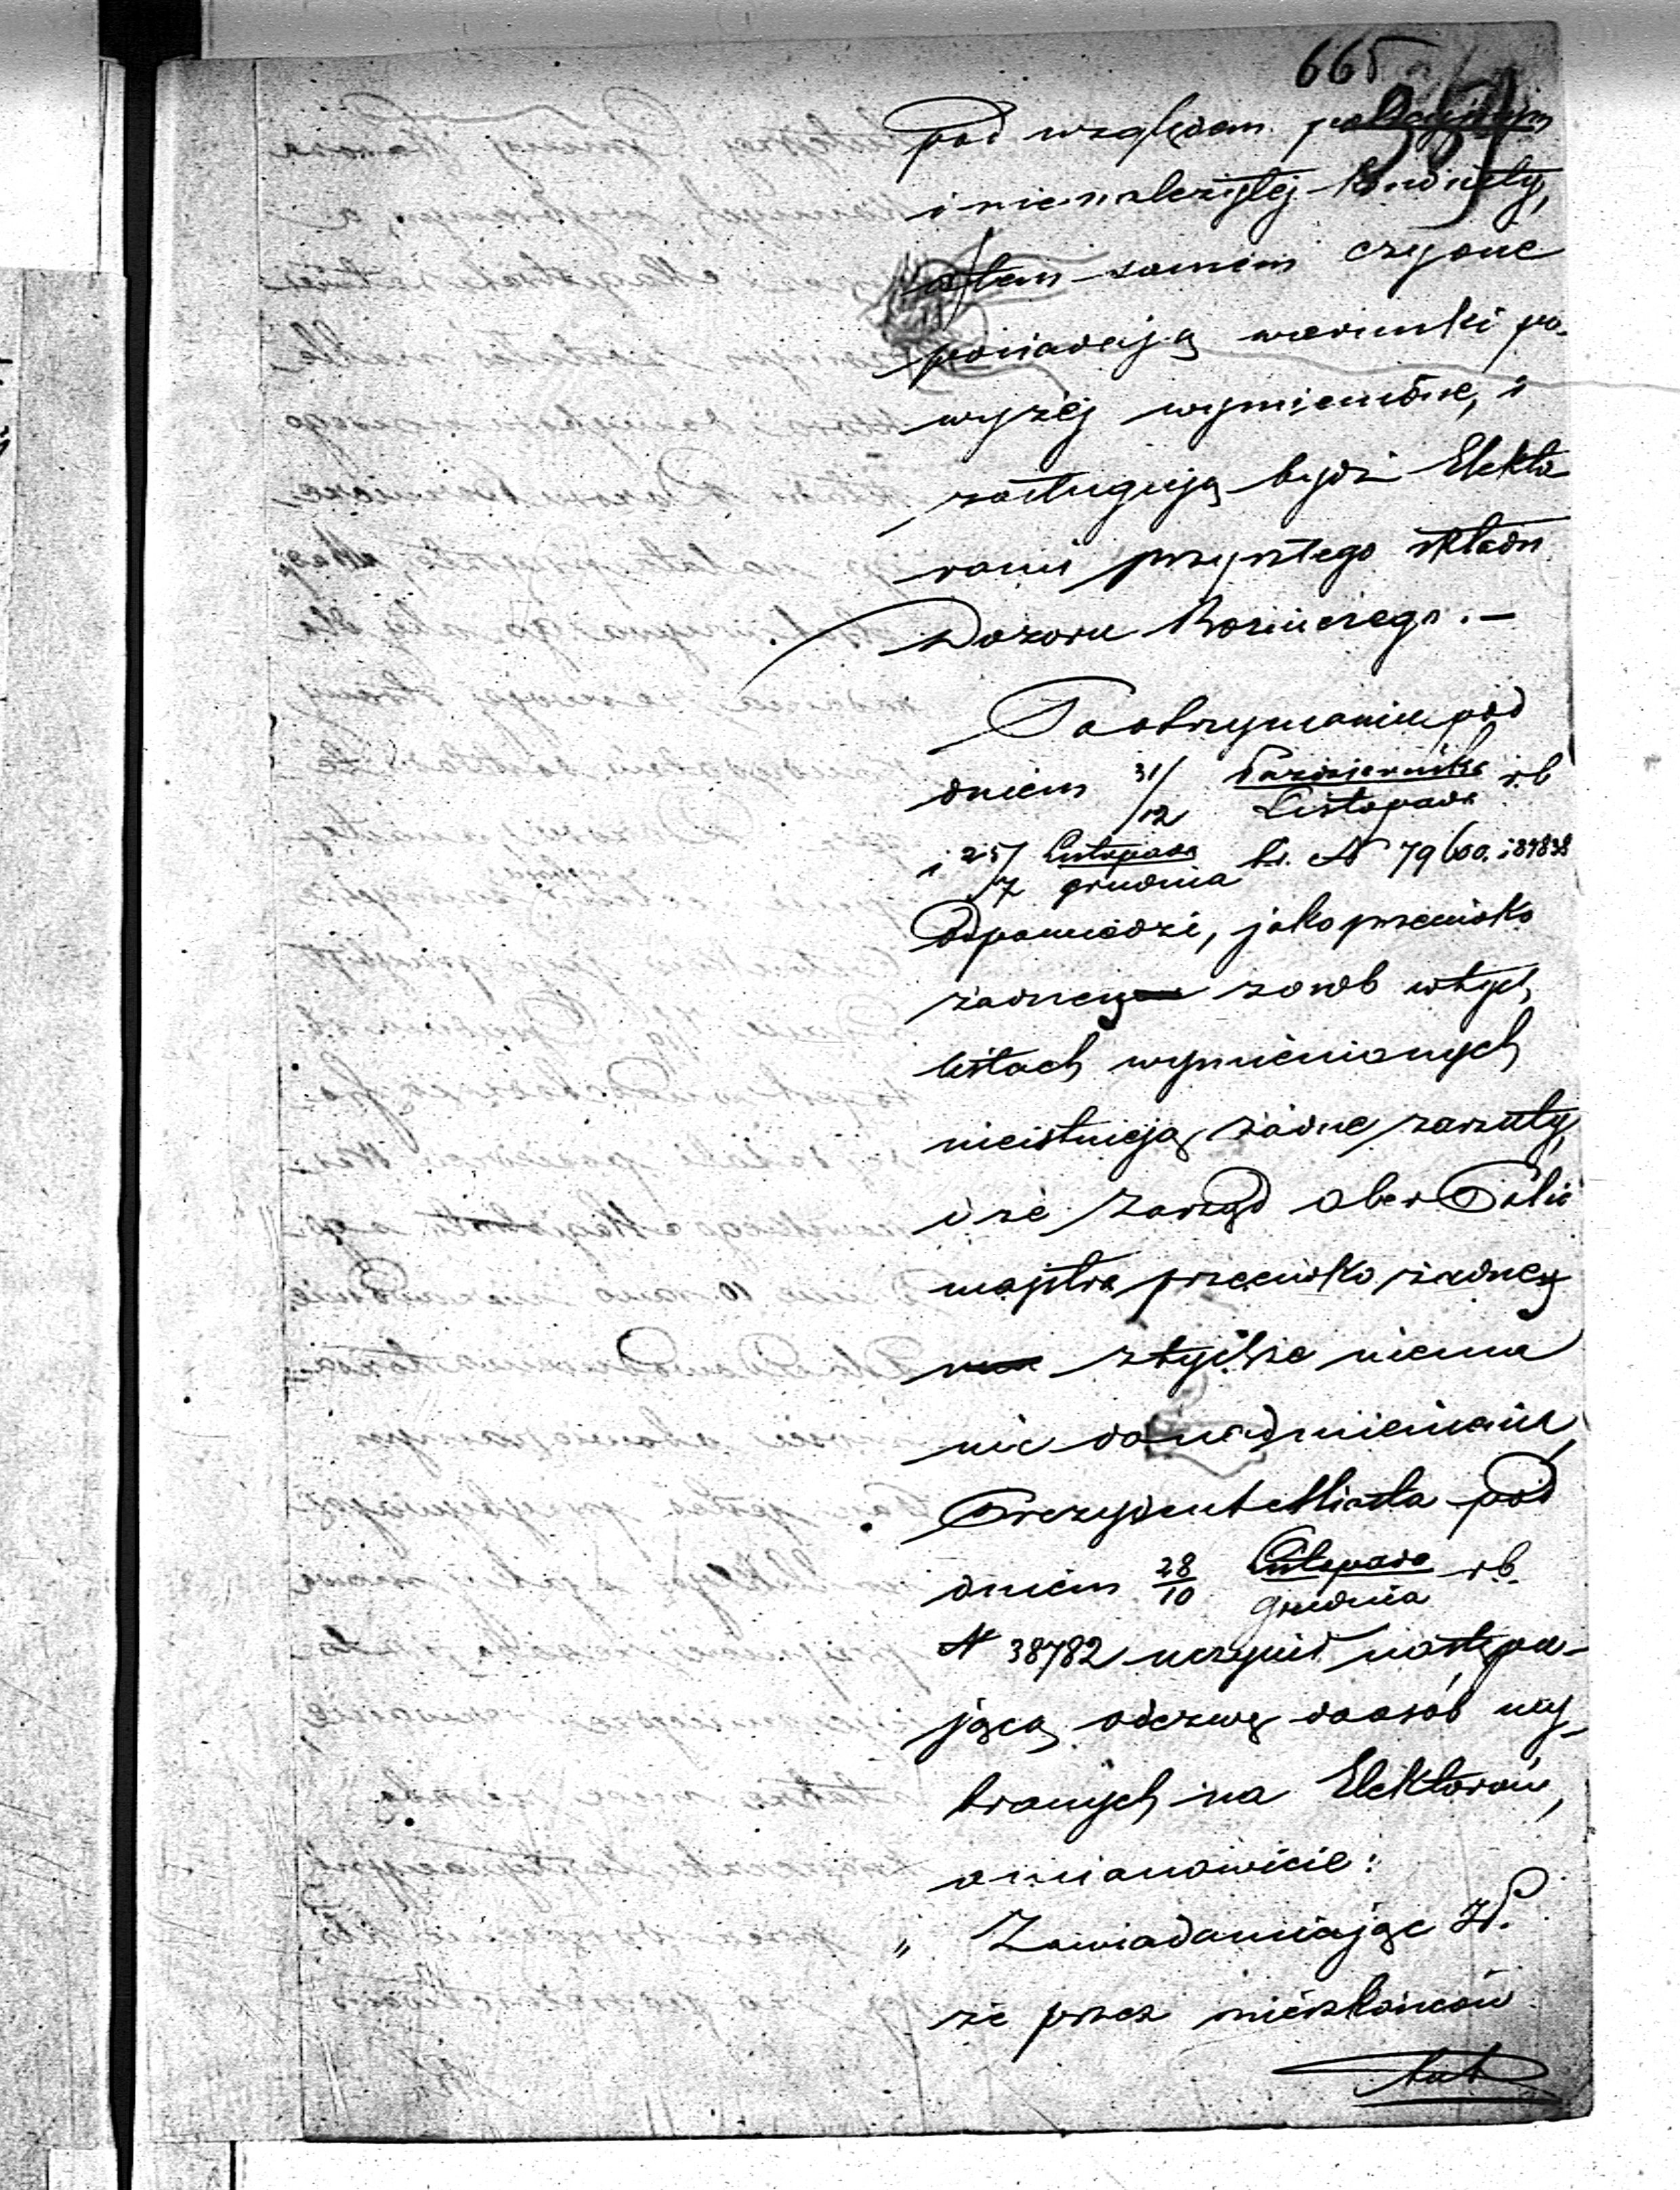 665
pod względem policyjnym
i nienależytej konduity,
a tem samem czy one
posiadają warunki po-
wyżej wymienione, i
zasługują bydź Elekto
rami przyszłego składu
Dozoru Bożniczego. —
Po otrzymaniu pod
dniem 31/12 Października/Listopada r.b
i 25/7 Listopada/Grudnia b.r. N 79
Odpowiedzi, jako przeciwko
żadnej z osób w tych
listach wymienionych
nieistnieją żadne zarzuty,
i że Zarząd Ober Polic
majstra przeciwko żadney
z tychże niema
nic do nadmienienia,
Prezydent Miasta pod
dniem 28/10 Listopada/Grudnia r.b.
N 38782 uczynił następu-
jącą odezwę do osób wy-
branych na Elektorów,
a mianowicie:
" Zawiadamiając W.
że przez mieszkańców